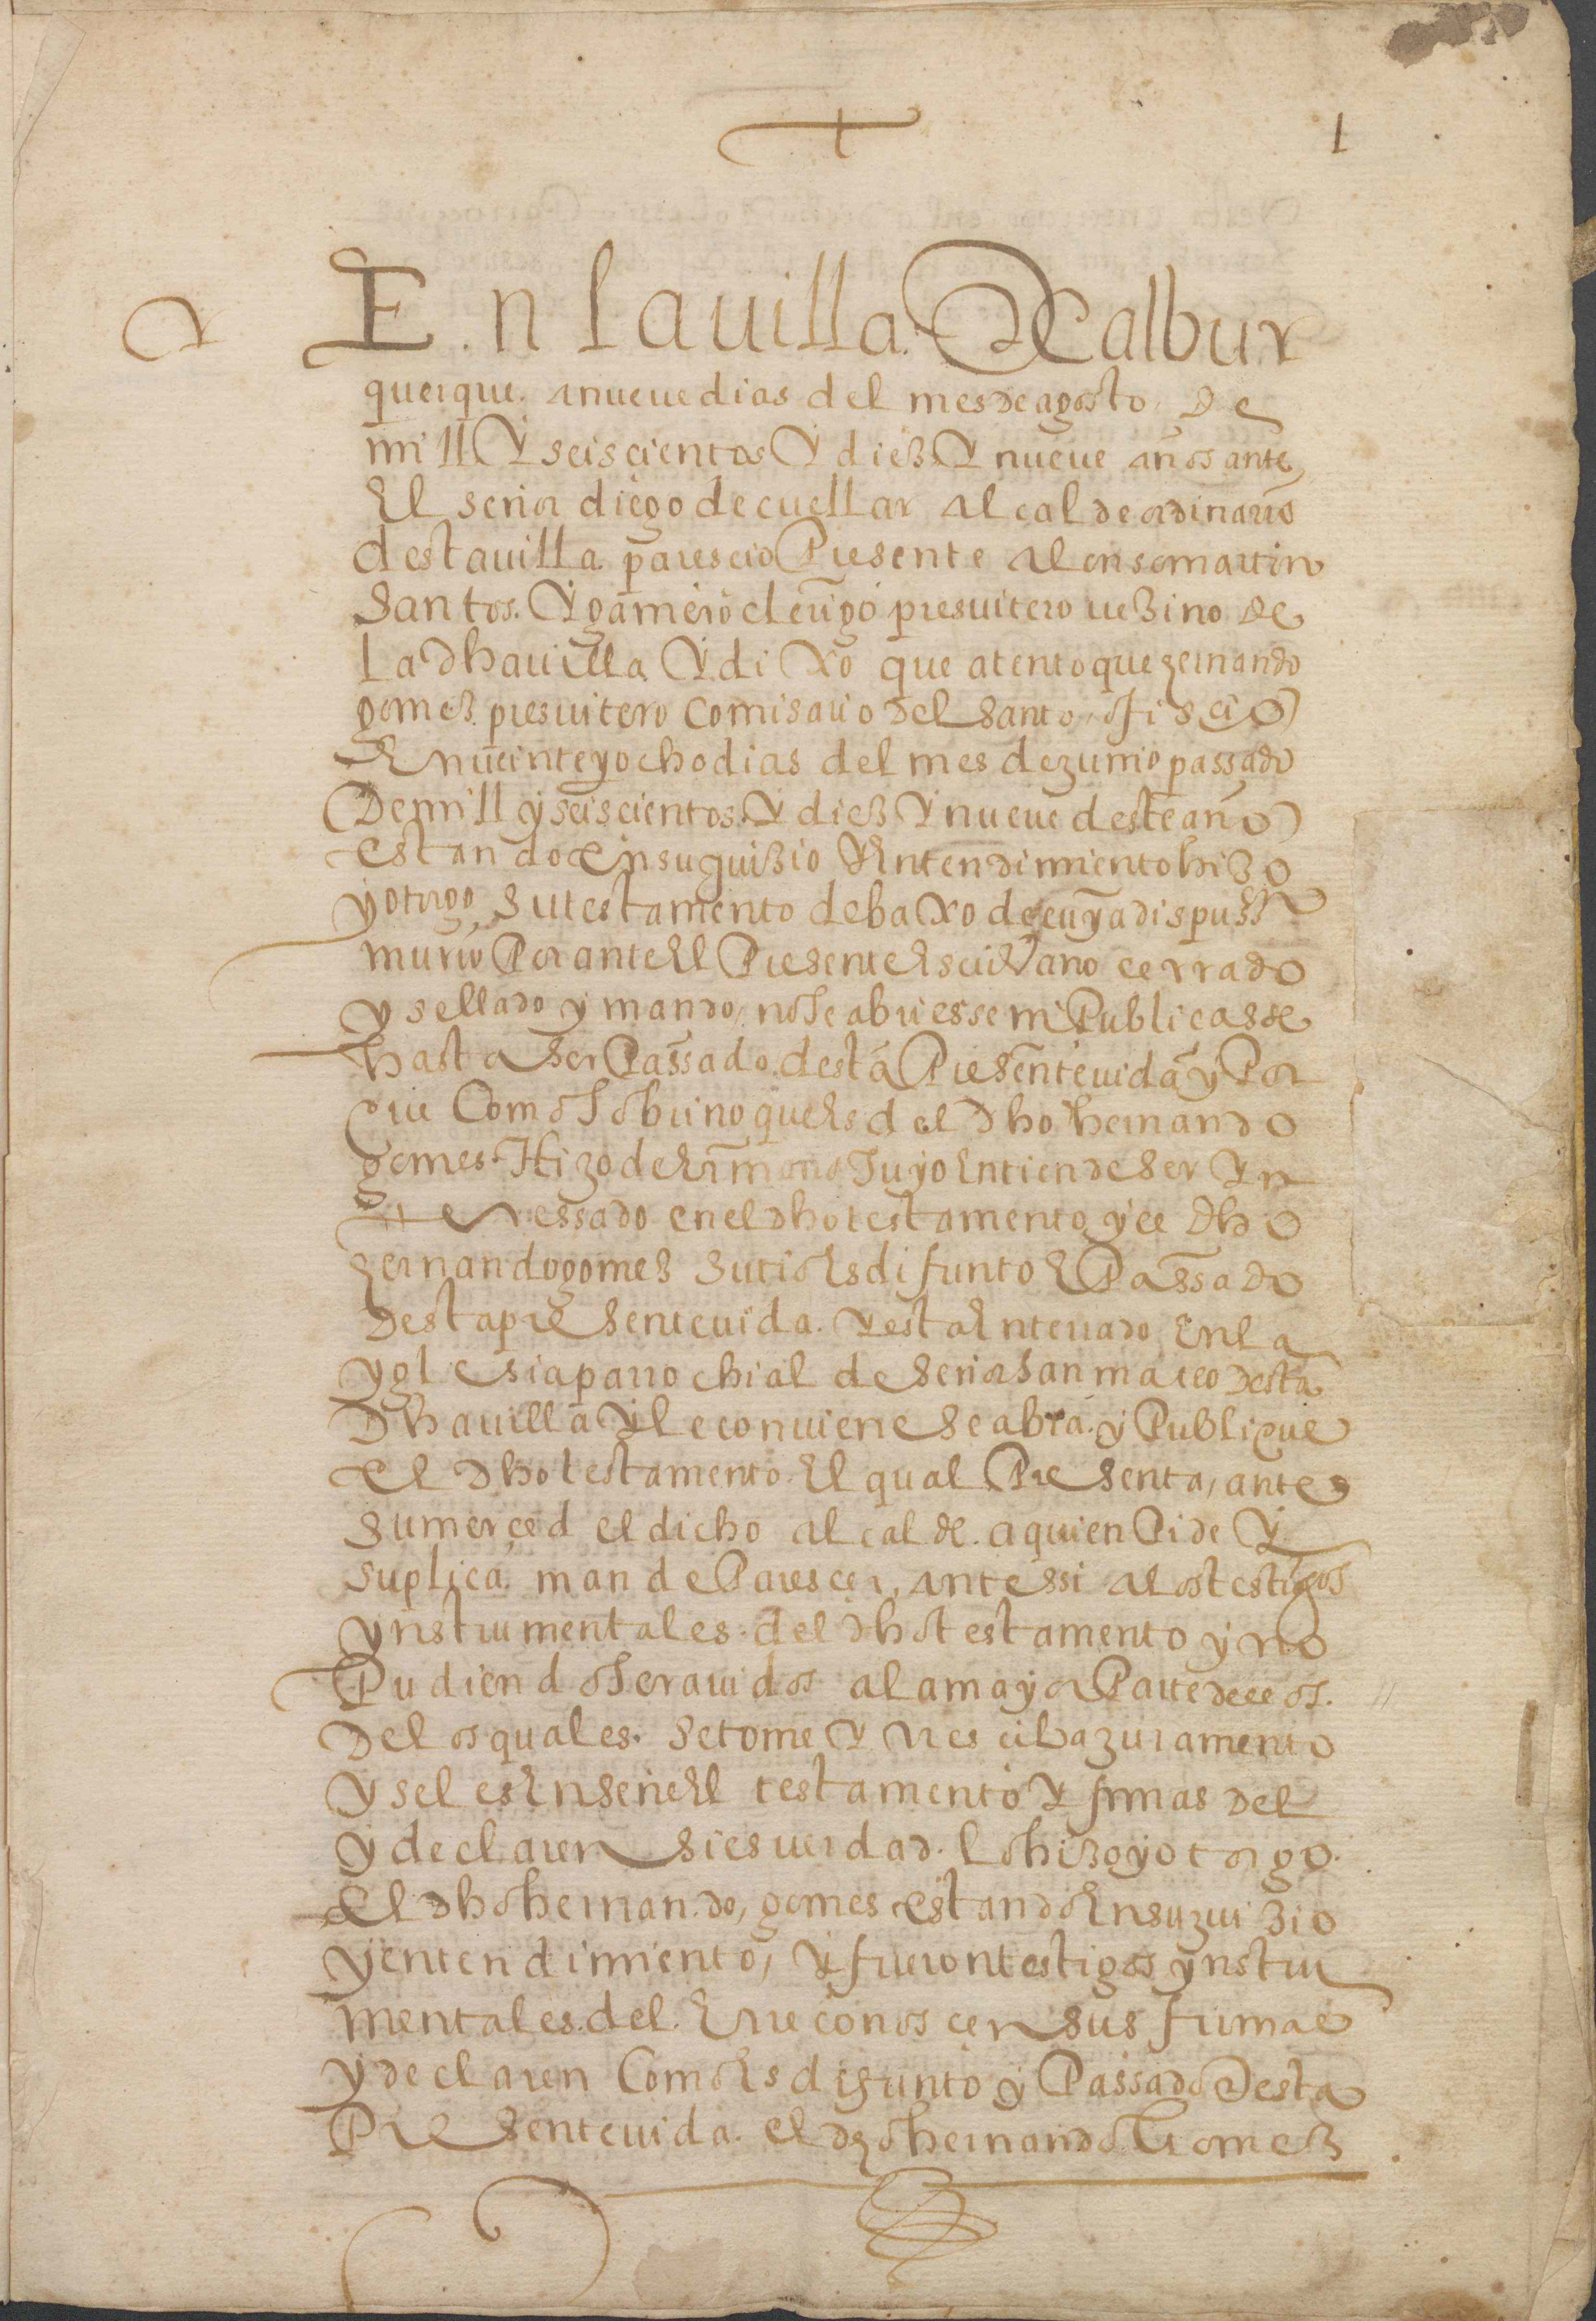 1
En la uilla De albur
querque. a nueue dias del mes de agosto De
mill Y seiscientos Y diez Y nueue años ante
El señor diego de cuellar alcalde ordinario
desta uilla. paresçio Presente alonso martin
Santos. Y gamero clerigo presuitero uezino de
la dha uilla Y dixo que atento que hernando
gomez presuitero Comisario del santo ofiscio
En ueinte y ocho dias del mes de zunio passado
De mill y seiscientos Y diez Y nueue deste año
estando en su guizio Y Entendimiento hizo
y otorgo su testamento debaxo de cuya dispuss.n
murio Por ante El Presente Escriuano cerrado
y sellado y mando no se abriesse ni Publicasse
hasta ser Passado desta Presente uida y Por
que Como sobrino que Es del dho hernando
gomes. Hizo de hrmano suyo Entiende ser Yn
teressado en el dho testamento y el dho
hernando gomez su tio Es difunto E Passado
Desta presente uida. Y esta Enterrado En la
yglesia parrochial de señor san mateo desta
Dha uilla Y le conuiene se abra. y Publique
el dho testamento. El qual Presenta, ante
su merced el dicho alcalde. a quien Pide Y
suplica. mande Parescer, ante ssi a los testigos
ynstrumentales. del dho testamento y no
Pudiendo ser auidos a la mayor Parte dellos.
De los quales. se tome Y rresciba zuramento
y se les Enseñe El testamento Y firmas del
y declaren si es uerdad. lo hizo y otorgo.
el dho hernando, gomes estando En su zuizio
y entendimiento, Y fueron testigos ynstru
mentales. del. E rreconoscen sus firmas
y declaren Como Es difunto y Passado Desta
Presente uida. el dho hernando Gomez